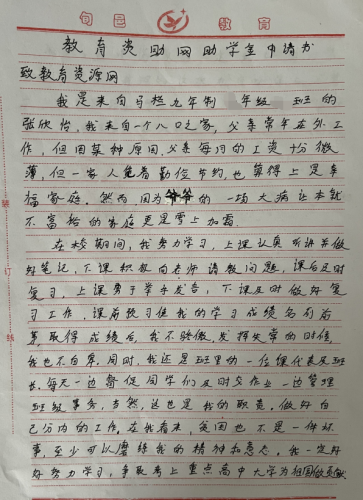 旬邑 教育
教育资助网助学金申请书
致教育资源网
我是来自马栏九年制 年级 班的
张欣怡,我来自一个八口之家,父亲常年在外工
作,但因某种原因,父亲每月的工资十分微
薄,但一家人凭着勤俭节约,也算得上是幸
福家庭。然而,因为爷爷的一场大病让本就
不富裕的家庭更是雪上加霜
在校期间,我努力学习,上课认真听讲并做
好笔记,下课积极向老师请教问题,课后及时
复习,上课勇于举手发言,下课及时做好复
习工作,课前预习但我的学习成绩名列前
茅取得成绩后,我不骄傲,发挥失常的时候,
我也不自卑,同时,我还是班里的一位课代表及班
长,每天一边督促同学们及时交作业一边管理
班级事务,当然,这也是我的职责,做好自
己分内的工作,在我看来,贫困也不是一件坏
事,至少可以磨练我的精神和意志,我一定好
好努力学习,争取考上重点高中大学为祖国做贡献
装
订
线